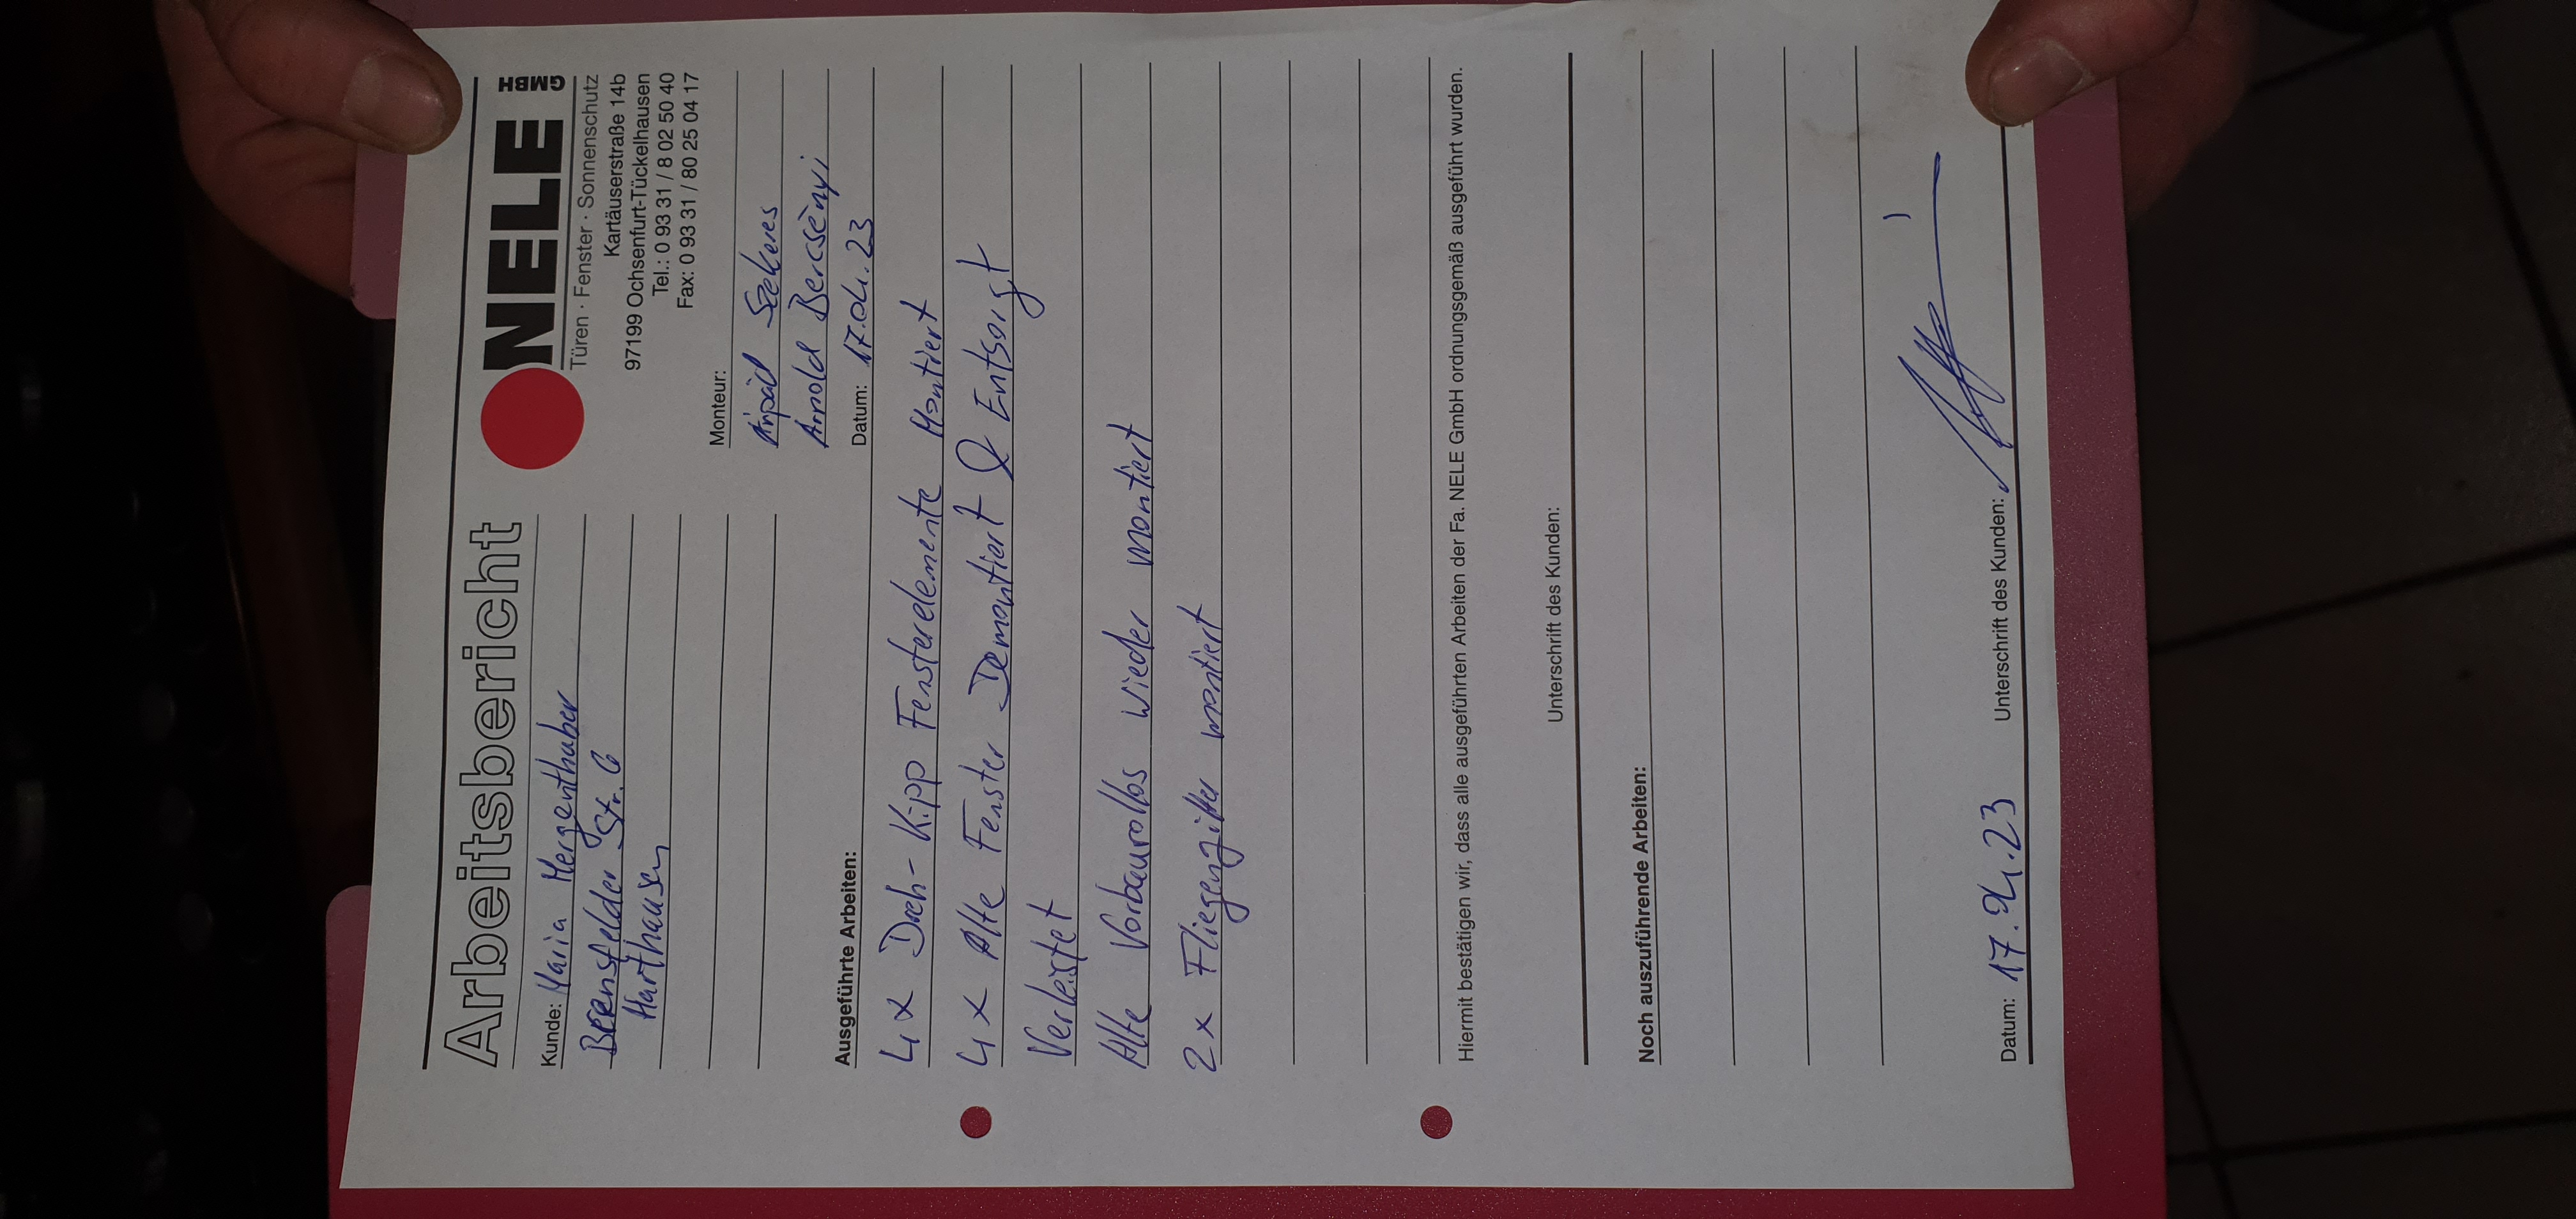 Arbeitsbericht
NELE GMBH
Türen · Fenster · Sonnenschutz
Kartäuserstraße 14b
97199 Ochsenfurt-Tückelhausen
Tel.: 0 93 31 / 8 02 50 40
Fax: 0 93 31 / 80 25 04 17
Kunde: Maria Mergenthaber
Bernsfelder Str. 6
Harthausen
Monteur:
Árpád Szekeres
Arnold Bercsènyi
Datum: 17.04.23
Ausgeführte Arbeiten:
4x Dreh-Kipp Fensterelemente Montiert
4x Alte Fenster Demontiert & Entsorgt
Verleistet
Alte Vorbaurollos wieder montiert
2x Fliegengitter montiert
Hiermit bestätigen wir, dass alle ausgeführten Arbeiten der Fa. NELE GmbH ordnungsgemäß ausgeführt wurden.
Unterschrift des Kunden:
Noch auszuführende Arbeiten:
Datum: 17.04.23 Unterschrift des Kunden: